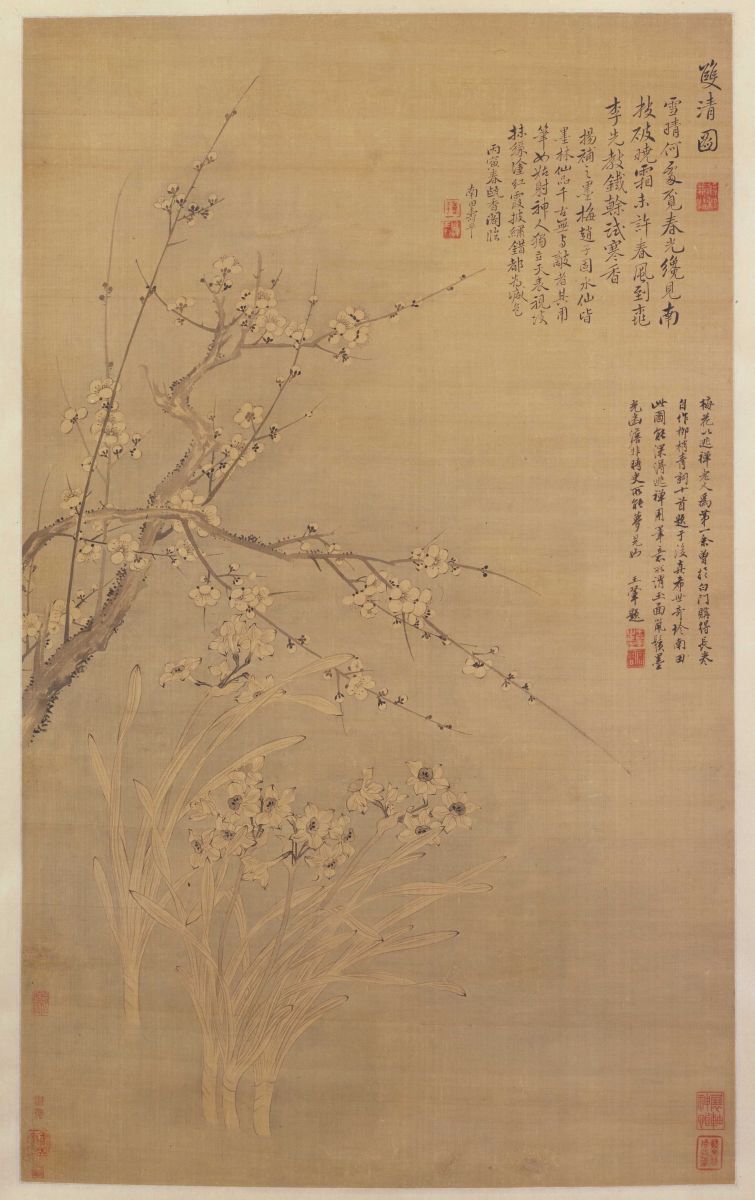 雙清圖
雪晴何處覓春光纔見南
枝破曉霜未許春風到桃
李先教鐵榦試寒香
楊補之墨梅趙子固水仙皆
墨林仙品千古無與敵者其用
筆如姑射神人獨立天表視
抹綠塗紅霞披繡錯都為減色
丙寅春甌香閣臨
南田壽平
梅花以逃禪老人為第一余曾於白門購得長卷
自作柳梢青詞十首題于後真希世奇珍南田
此圖能深得逃禪用筆玉面鼠鬚墨
光幽澹非時史所能夢見也 王翬題